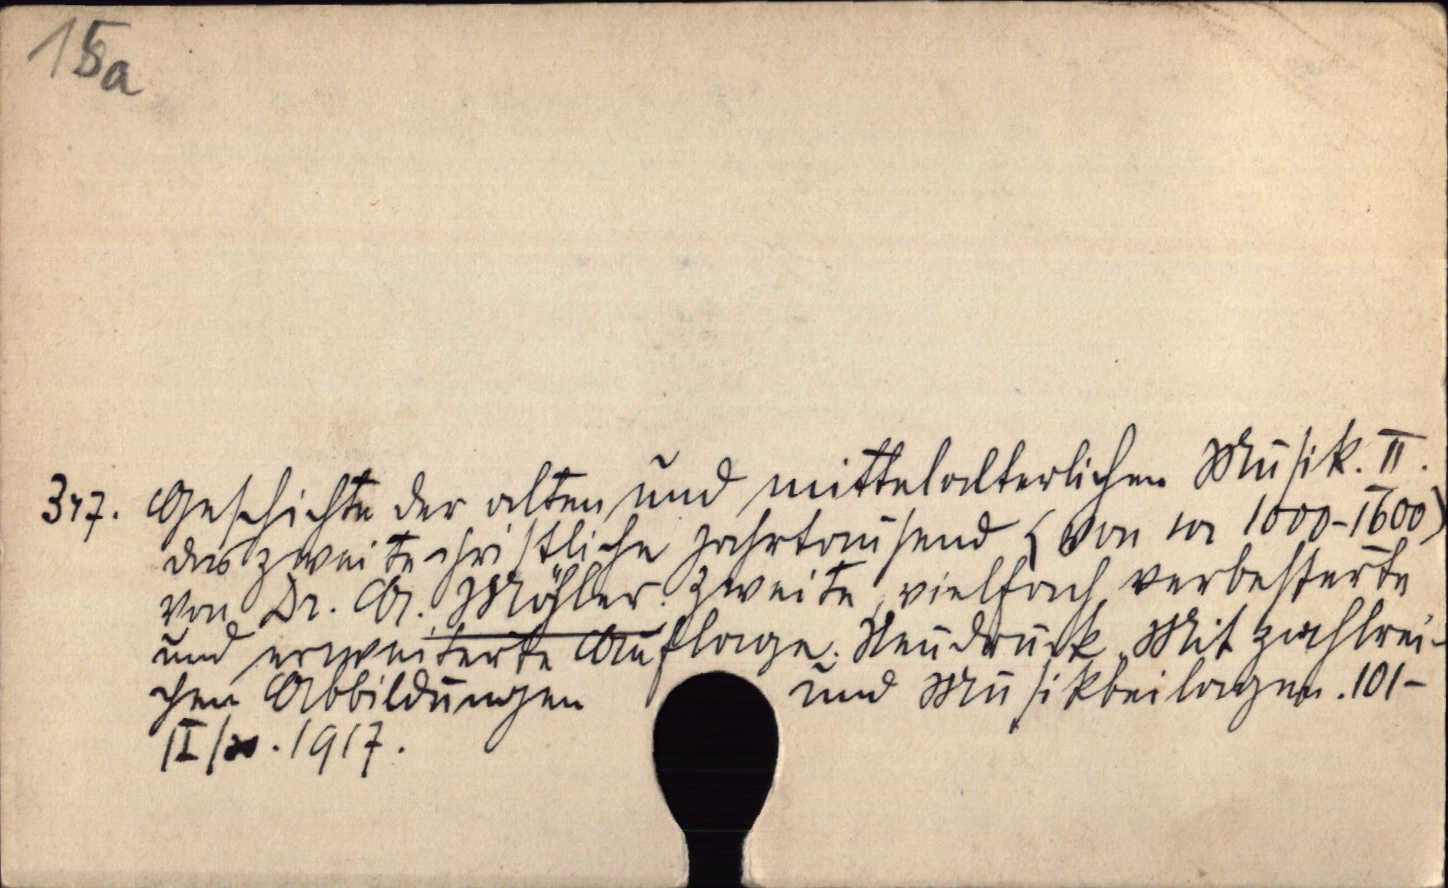 15a
347. Geschichte der alten und mittelalterlichen Musik. II.
das zweite christliche Jahrtausend (von ca 1000-1600)
von Dr. A. Möhler. Zweite, vielfach verbesserte
und erweiterte Auflage. Neudruck. Mit zahlrei-
chen Abbildungen und Musikbeilagen. 101-
II/20. 1917.